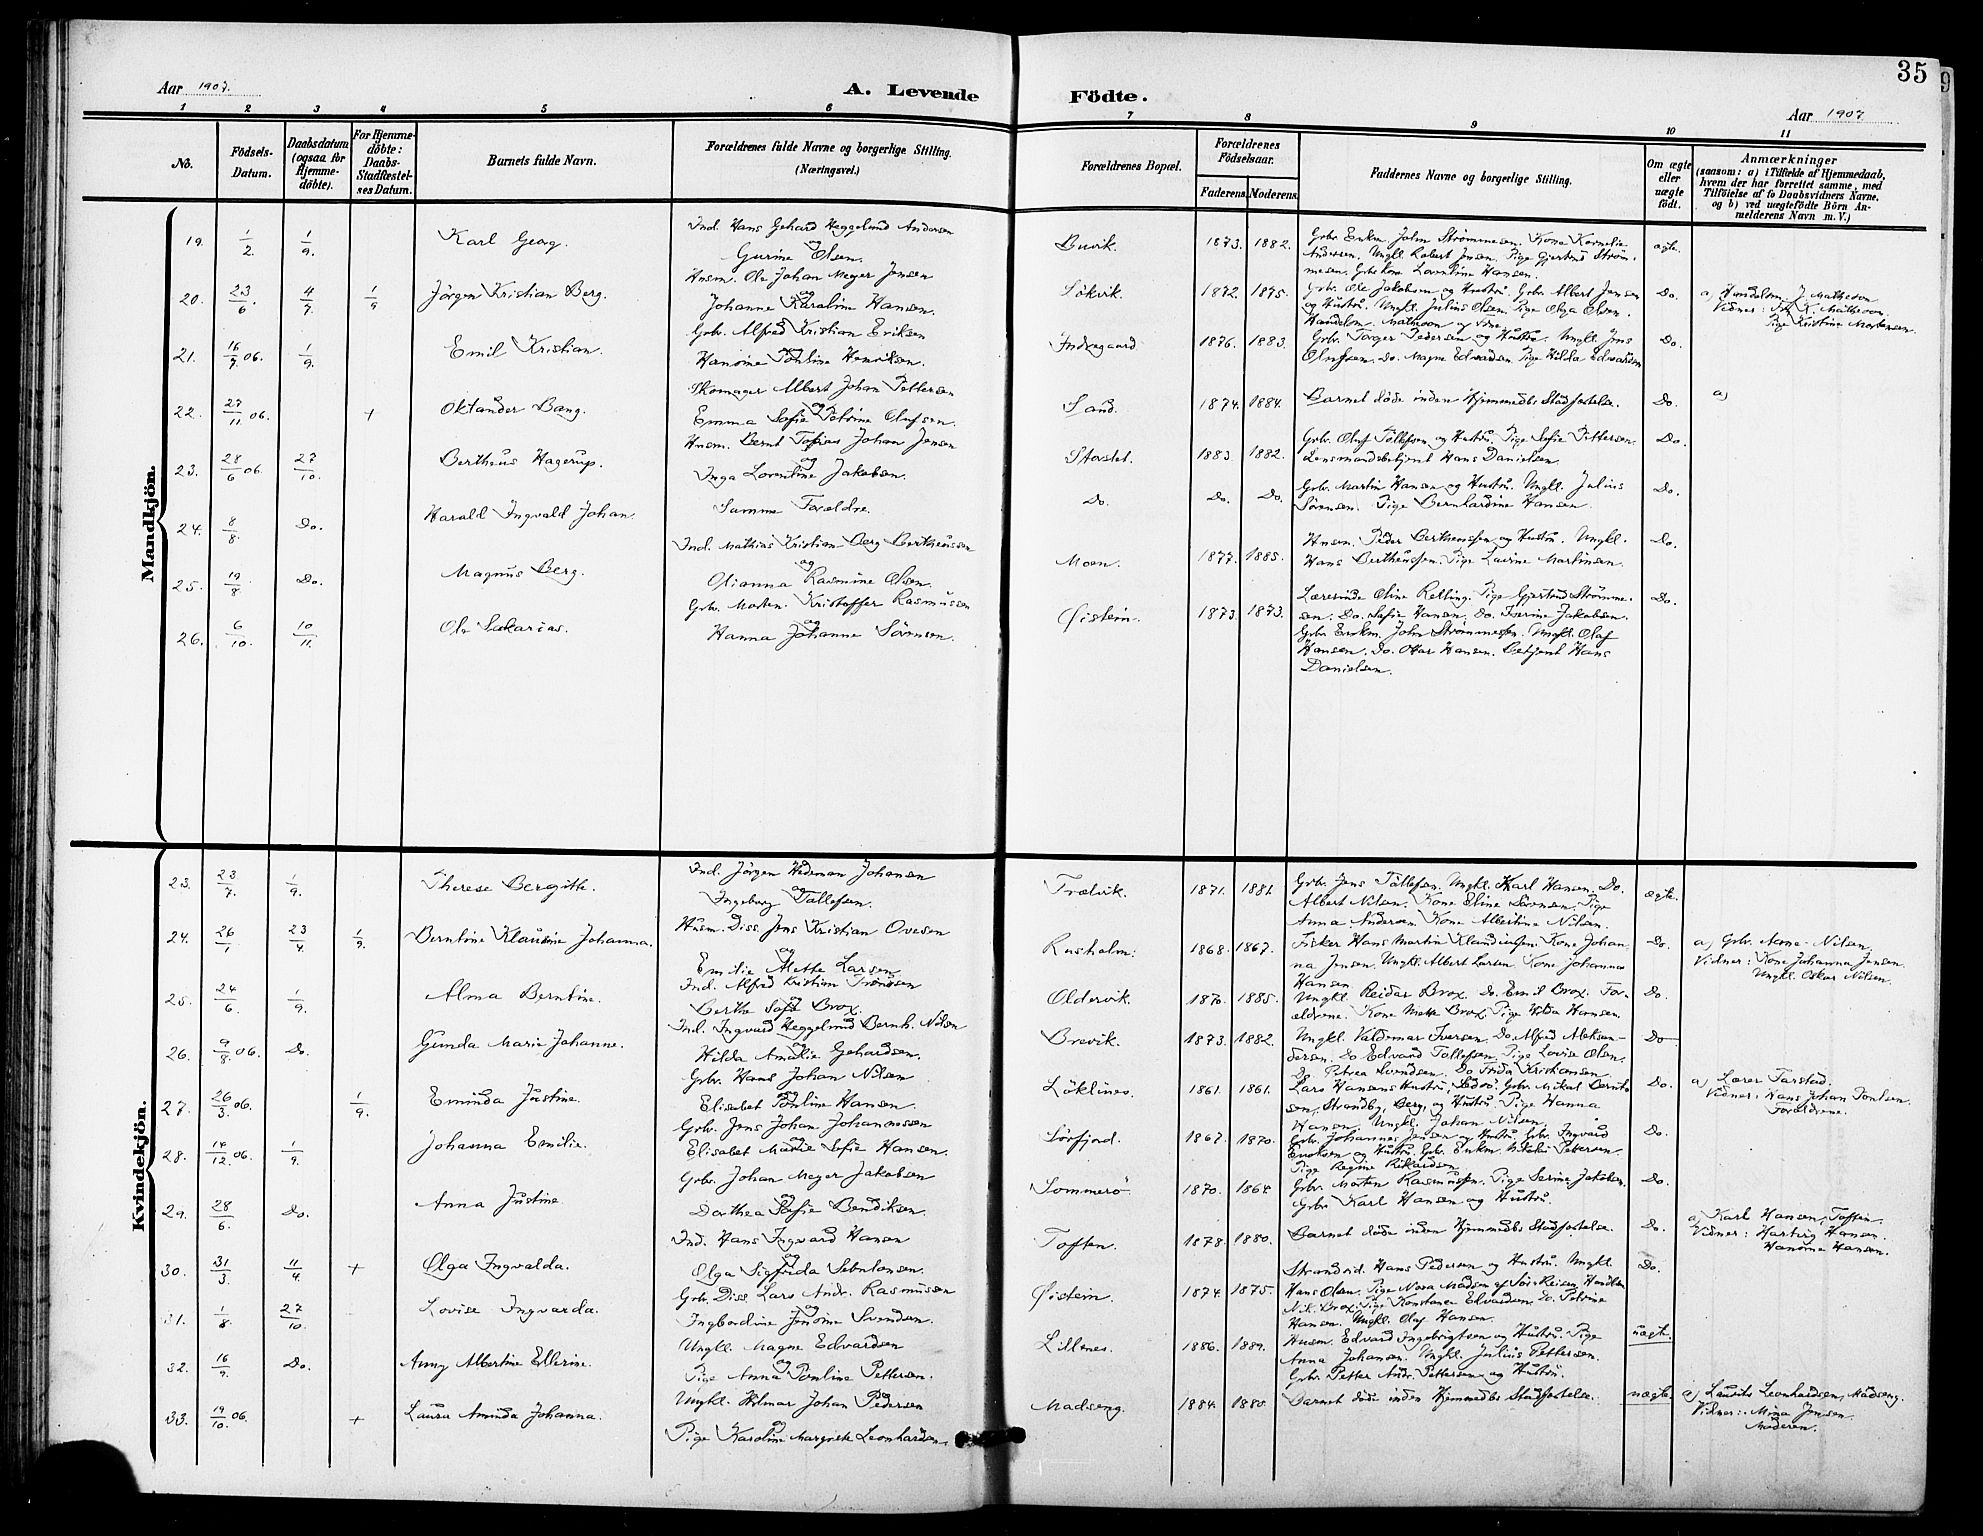 35
Aar 1907.
A. Levende Födte.
Aar 1907
1 2 3 4 5 6 7 8 9 10 11
No.
Födsels-Datum.
Daabsdatum (ogsaa for Hjemme-döbte).
For Hjemme-döbte: Daabs-Stadfæstel-ses Datum.
Barnets fulde Navn.
Forældrenes fulde Navne og borgerlige Stilling.
(Næringsvei.)
Forældrenes Bopæl.
Forældrenes Födselsaar.
Faderens. Moderens.
Faddernes Navne og borgerlige Stilling.
Om ægte eller uægte födt.
Anmærkninger
(saasom: a) i Tilfælde af Hjemmedaab,
hvem der har forrettet samme, med
Tilföielse af to Daabsvidners Navne.
og b) ved uægtefödte Börn An-
melderens Navn m. V.)
Mandkjön.
19. 1/2. 1/9. Karl Georg.
Ind. Hans Gehard Heggelund Andersen
og
Gurine Olsen.
Buvik. 1873. 1882.
Grbr. Enkm. John Strømmesen. Kone Kornelia
Andersen. Ungkl. Robert Jensen. Pige Gjertrud Strøm-
mesen. Grbs kone Lorentine Hansen.
ægte.
20. 23/6. 4/7. 1/9 Jörgen Kristian Berg.
Husm. Ole Johan Meyer Jensen
og
Johanne Karoline Hansen.
Lökvik. 1872. 1875.
Grbr. Ole Jakobsen og Hustru. Grbr. Albert Jensen
og Hustru. Ungkl. Julius Olsen. Pige Olga Olsen.
Handelsm. Matheson og Frue.
Do.
a) Handelsm. J. Matheson.
Vidner: K. Matheson.
Pige Kristine Mortensen.
21. 16/7 06. 1/9. Emil Kristian.
Grbr. Alfred Kristian Eriksen
og
Hansine Pauline Henriksen.
Indregaard 1876. 1883.
Grbr. Torger Pedersen og Hustru. Ungkl. Jens
Olufsen. Do. Magne Edvardsen. Pige Hilda Edvardsen
Do.
22. 27/11 06. + Oktander Bang.
Skomager Albert Johan Pettersen
og
Emma Sofie Petrine Olufsen.
Sand. 1874. 1884.
Barnet döde inden Hjemmedbs Stadfæstelse.
Do. a)
23. 28/6 06. 27/10. Bertheus Hagerup.
Husm. Bernt Tobias Johan Jensen
og
Inga Lorentine Jakobsen.
Storslet. 1883. 1882.
Grbr. Oluf Tollefsen og Hustru. Pige Sofie Pettersen.
Lensmandsbetjent Hans Danielsen.
Do.
24. 8/8. Do. Harald Ingvald Johan.
Samme Forældre.
Do. Do. Do.
Grbr. Martin Hansen og Hustru. Ungkl. Julius
Sörensen. Pige Bernhardine Hansen
Do.
25. 19/8. Do. Magnus Berg.
Ind. Mathias Kristian Berg Bertheussen
og
Olianna Rasmine Olsen.
Moen. 1877. 1885.
Husm. Peder Bertheussen og Hustru. Ungkl.
Hans Bertheussen. Pige Lavine Martinsen.
Do.
26. 6/10. 10/11. Ole Sakarias.
Grbr. Morten Kristoffer Rasmussen
og
Hanna Johanne Sörensen.
Øistein. 1873. 1873.
Lærerinde Oline Relling. Pige Gjertrud Strømme-
sen. Do. Sofie Hansen. Do. Iverine Jakobsen.
Grbr. Enkm. John Strømmesen. Ungkl. Olaf
Hansen. Do. Otar Hansen. Betjent Hans
Danielsen.
Do.
Kvindekjön.
23. 23/7. 1/9. Therese Bergitte.
Ind. Jörgen Hedeman Johansen
og
Ingeborg Tollefsen.
Trælvik. 1871. 1881.
Grbr. Jens Tollefsen. Ungkl. Karl Hansen. Do.
Albert Nilsen. Kone Eline Sörensen. Pige
Anna Andersen. Kone Albertine Nilsen.
ægte.
24. 26/1. 23/4. 1/9. Berntine Klausine Johanna.
Husm. Diss. Jens Kristian Ovesen
og
Emilie Mette Larsen.
Rusholm. 1868. 1867.
Fisker Hans Martin Klaudiusen. Kone Johan-
na Jensen. Ungkl. Albert Larsen. Kone Johanna
Hansen.
Do.
a) Grbr. Arne Nilsen.
Vidner: Kone Johanna Jensen.
Ungkl. Oskar Nilsen.
25. 24/6. 1/9. Alma Berntine.
Ind. Alfred Kristian Trondsen
og
Berthe Sofie Brox.
Oldervik. 1870. 1885.
Ungkl. Reidar Brox. Do. Emil Brox. For-
ældrene. Kone Mette Brox. Pige Hilda Hansen.
Do.
26. 9/8 06. Do. Gunda Marie Johanne.
Ind. Ingvard Heggelund Bernh. Nilsen
og
Hilda Amalie Gehardsen.
Brevik. 1873. 1882.
Ungkl. Valdemar Iversen. Do. Alfred Aleksan-
dersen. Do Edvard Tollefsen. Pige Lovise Olsen.
Do. Petrea Svendsen. Do Frida Kristiansen.
Do
27. 26/3 06. 1/9. Eminda Justine.
Grbr. Hans Johan Nilsen
og
Elisabet Pauline Hansen.
Löklines. 1861. 1861.
Lars Hansens Hustru, Grbr. Mikal Bernt-
sen, Strandby, Berg, og Hustru. Pige Hanna
Hansen. Ungkl. Johan Nilsen.
Do.
a) Lærer Tarstad.
Vidner: Hans Johan
Forældrene.
28. 14/12 06. 1/9. Johanna Emilie.
Grbr. Jens Johan Johannessen
og
Elisabet Marie Sofie Hansen.
Sörfjord. 1867. 1870.
Grbr. Johannes Jensen og Hustru. Grbr. Ingvard
Enoksen og Hustru. Grbr. Enkm. Nikolai Pettersen.
Pige Regine Rikardsen.
Do.
29. 28/6. Do. Anna Justine
Grbr. Johan Meyer Jakobsen
og
Dorthea Sofie Bendiksen.
Sommerö 1870. 1864
Grbr. Morten Rasmussen. Pige Serine Jakobsen.
Grbr. Karl Hansen og Hustru.
Do.
30. 31/3. 11/4. + Olga Ingvalda.
Ind. Hans Ingvard Hansen
og
Olga Sigfrida Sebulonsen.
Toften. 1878. 1880.
Barnet döde inden Hjemmedbs Stadfæstelse.
Do.
a) Karl Hansen, Toften.
Vidner: Hartvig Hansen.
Hansine Hansen.
31. 1/8. 27/10. Lovise Ingvarda.
Grbr. Diss. Lars Andr. Rasmussen
og
Ingbordine Jensine Svendsen.
Øistein. 1874. 1875.
Strandsid. Hans Pedersen og Hustru. Ungkl.
Hans Olsen. Pige Nora Madsen af Sör-Reisen. Handlsm
Nik. Brox. Pige Konstanse Edvardsen. Do. Petrine
Hansen. Ungkl. Olaf Hansen.
Do.
32. 16/9. Do. Anny Albertine Ellerine.
Ungkl. Magne Edvardsen
og
Pige Anna Pauline Pettersen.
Lillenes. 1886. 1889.
Husm. Edvard Ingebrigtsen og Hustru. Pige
Anna Johansen. Ungkl. Julius Pettersen.
Grbr. Petter Andr. Pettersen og Hustru.
uægte.
33. 19/10 06. + Laura Aminda Johanna.
Ungkl. Hilmar Johan Pedersen
og
Pige Karoline Margrete Leonhardsen.
Madseng. 1884. 1880.
Barnet döde inden Hjemmedbs Stadfæstelse.
uægte.
a) Laurits Leonhardsen, Madseng.
Vidner: Mina Jensen.
Moderen.